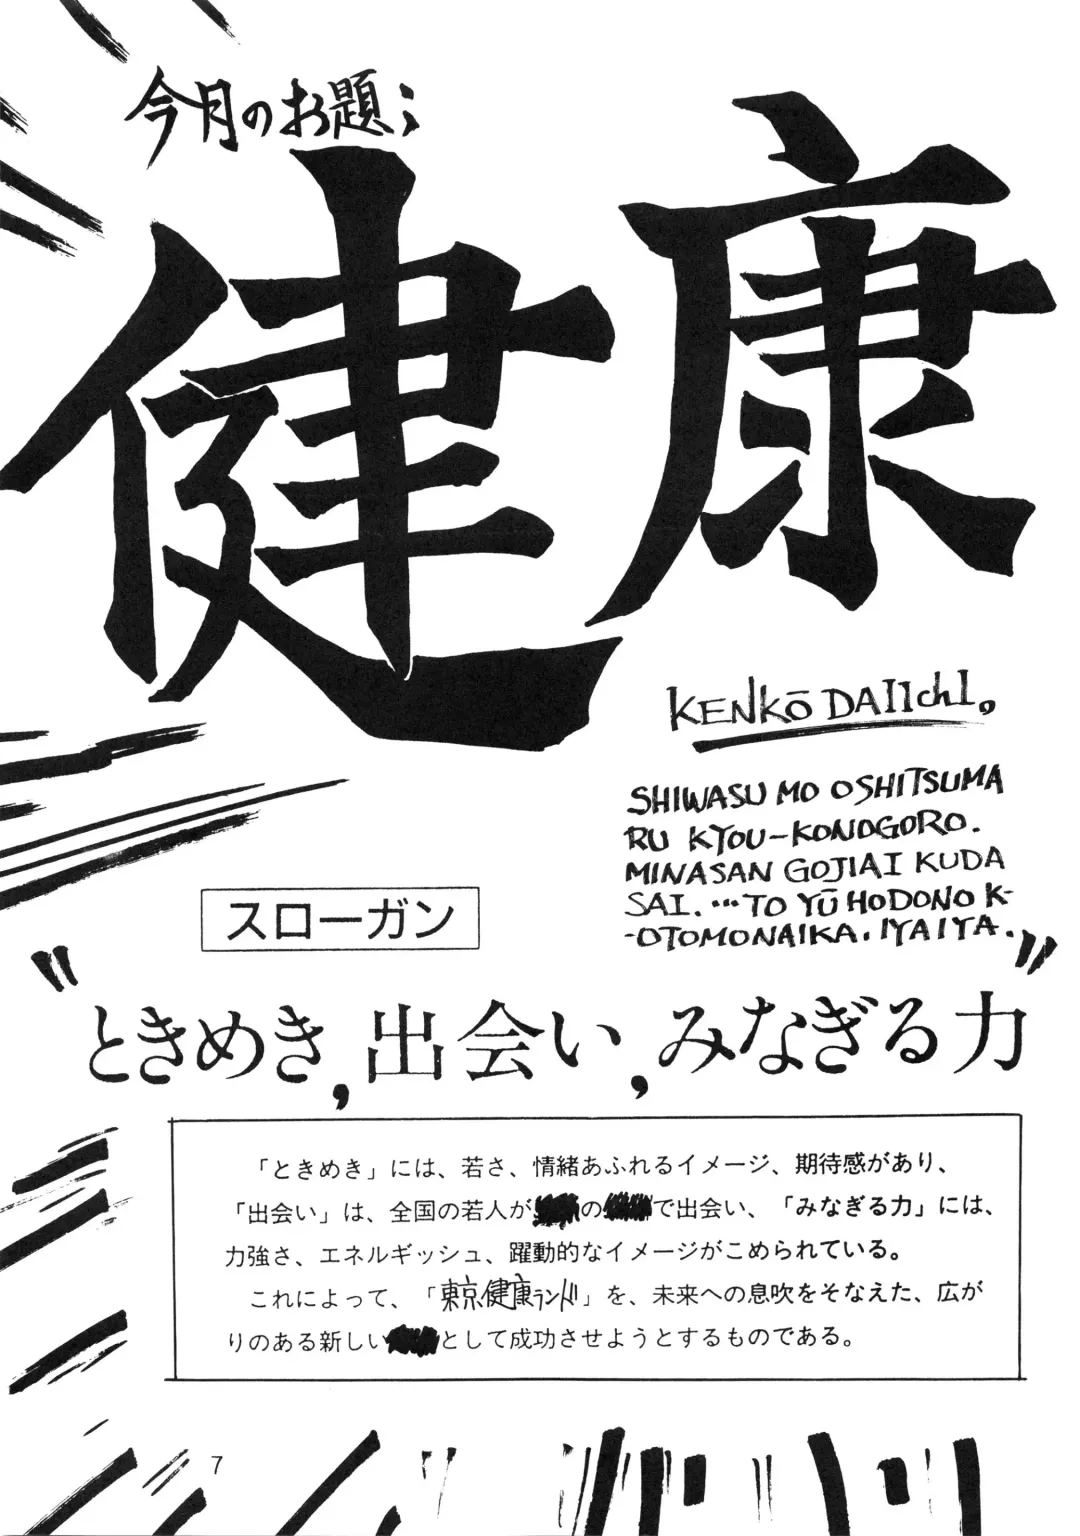 今月のお題;
健康
KENKŌ DAIICHI。
SHIWASU MO OSHITSUMA
RU KYOU-KONOGORO.
MINASAN GOJIAI KUDA
SAI. …TO YŪ HODONO K-
-OTOMONAIKA. IYAIYA.
スローガン
〝ときめき,出会い,みなぎる力〟
「ときめき」には、若さ、情緒あふれるイメージ、期待感があり、
「出会い」は、全国の若人がので出会い、「みなぎる力」には、
力強さ、エネルギッシュ、躍動的なイメージがこめられている。
これによって、「東京健康ランド」を、未来への息吹をそなえた、広が
りのある新しいとして成功させようとするものである。
7